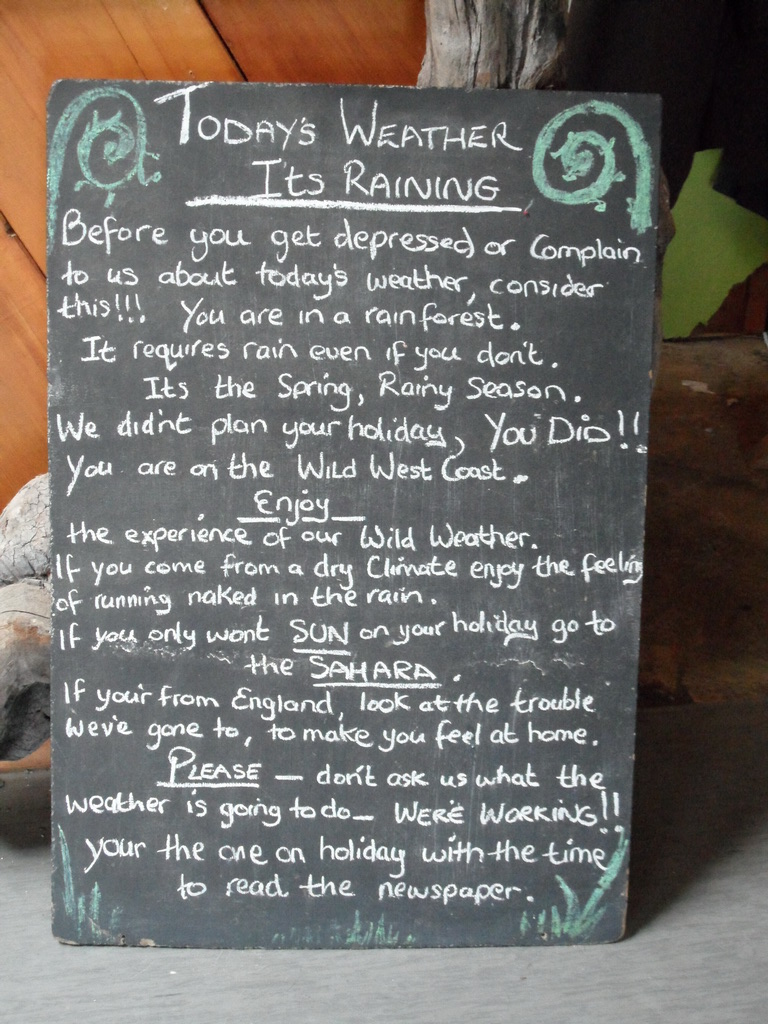 TODAY'S WEATHER
ITS RAINING
Before you get depressed or Complain
to us about today's weather, consider
this!!! You are in a rainforest.
It requires rain even if you don't.
Its the Spring, Rainy Season.
We didn't plan your holiday, YOU DID!!
You are on the WILD WEST COAST.
Enjoy
the experience of our Wild Weather.
If you come from a dry Climate enjoy the feeling
of running naked in the rain.
If you only wont SUN on your holiday go to
the SAHARA.
If your from England, look at the trouble
we've gone to, to make you feel at home.
PLEASE – don't ask us what the
weather is going to do – WERE WORKING!!
your the one on holiday with the time
to read the newspaper.